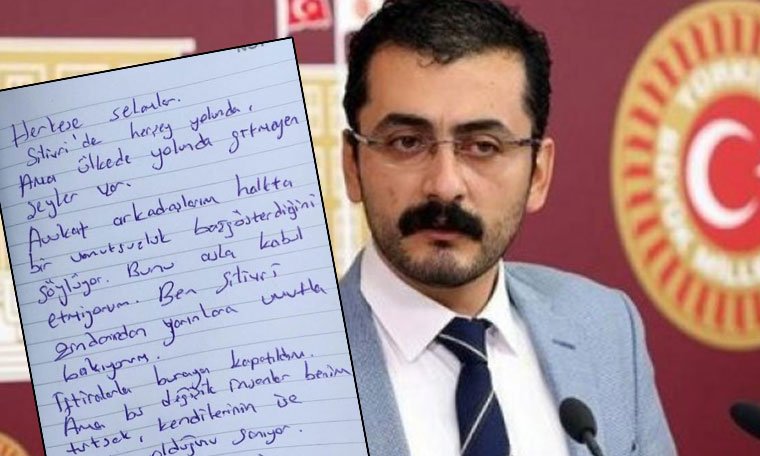 Herkese selamlar.
Silivri'de herşey yolunda,
Ama ülkede yolunda gitmeyen
şeyler var.
Avukat arkadaşlarım halkta
bir umutsuzluk başgösterdiğini
söylüyor. Bunu asla kabul
etmiyorum. Ben Silivri
zindanından yarınlara umutla
bakıyorum.
İftiralarla buraya kapatıldım.
Ama bu değişik insanlar benim
tutsak, kendilerinin ise
olduğunu sanıyor.
TÜRKİYE
BÜYÜK
MİLLET